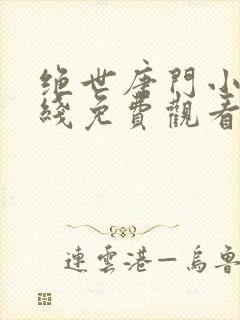 绝世唐門小
綫免費觀看
連雲港—烏魯